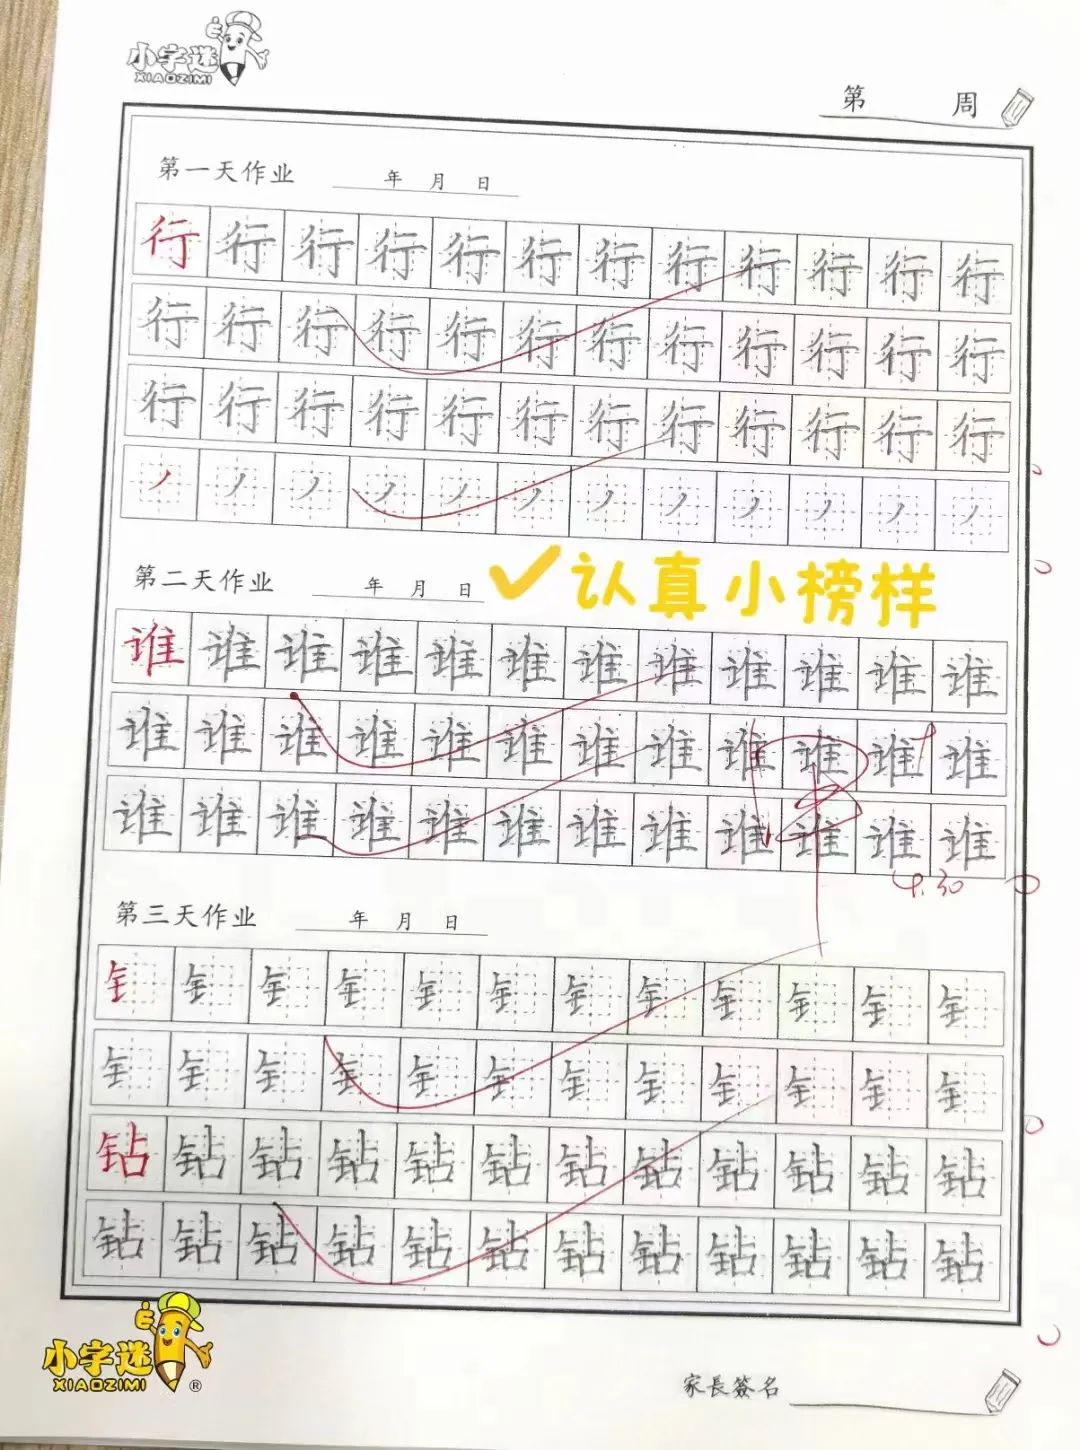 小字迷
XIAOZIMI
第 周
第一天作业 年 月 日
行 行 行 行 行 行 行 行 行 行 行 行
行 行 行 行 行 行 行 行 行 行 行 行
行 行 行 行 行 行 行 行 行 行 行 行
第二天作业 年 月 日
✓认真小榜样
谁 谁 谁 谁 谁 谁 谁 谁 谁 谁 谁 谁
谁 谁 谁 谁 谁 谁 谁 谁 谁 谁 谁 谁
谁 谁 谁 谁 谁 谁 谁 谁 谁 谁 谁 谁
第三天作业 年 月 日
钅 钅 钅 钅 钅 钅 钅 钅 钅 钅 钅 钅
钅 钅 钅 钅 钅 钅 钅 钅 钅 钅 钅 钅
钻 钻 钻 钻 钻 钻 钻 钻 钻 钻 钻 钻
钻 钻 钻 钻 钻 钻 钻 钻 钻 钻 钻 钻
小字迷
XIAOZIMI ®
家長簽名